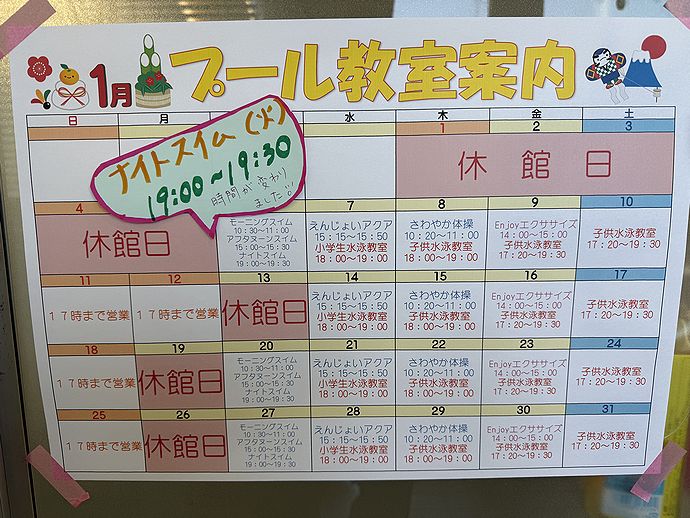 1月 プール教室案内
日 月 水 木 金 土
ナイトスイム(火)
19:00〜19:30
時間が変わり
ました!!
1 2 3
休館日
4 7 8 9 10
休館日
モーニングスイム
10:30〜11:00
アフタヌーンスイム
15:00〜15:30
ナイトスイム
19:00〜19:30
えんじょいアクア
15:15〜15:50
小学生水泳教室
18:00〜19:00
さわやか体操
10:20〜11:00
子供水泳教室
18:00〜19:00
Enjoyエクササイズ
14:00〜15:00
子供水泳教室
17:20〜19:30
子供水泳教室
17:20〜19:30
11 12 13 14 15 16 17
17時まで営業
17時まで営業
休館日
えんじょいアクア
15:15〜15:50
小学生水泳教室
18:00〜19:00
さわやか体操
10:20〜11:00
子供水泳教室
18:00〜19:00
Enjoyエクササイズ
14:00〜15:00
子供水泳教室
17:20〜19:30
子供水泳教室
17:20〜19:30
18 19 20 21 22 23 24
17時まで営業
休館日
モーニングスイム
10:30〜11:00
アフタヌーンスイム
15:00〜15:30
ナイトスイム
19:00〜19:30
えんじょいアクア
15:15〜15:50
小学生水泳教室
18:00〜19:00
さわやか体操
10:20〜11:00
子供水泳教室
18:00〜19:00
Enjoyエクササイズ
14:00〜15:00
子供水泳教室
17:20〜19:30
子供水泳教室
17:20〜19:30
25 26 27 28 29 30 31
17時まで営業
休館日
モーニングスイム
10:30〜11:00
アフタヌーンスイム
15:00〜15:30
ナイトスイム
19:00〜19:30
えんじょいアクア
15:15〜15:50
小学生水泳教室
18:00〜19:00
さわやか体操
10:20〜11:00
子供水泳教室
18:00〜19:00
Enjoyエクササイズ
14:00〜15:00
子供水泳教室
17:20〜19:30
子供水泳教室
17:20〜19:30